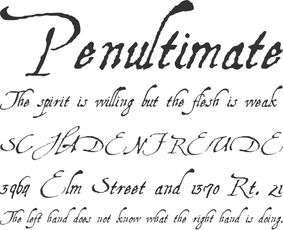 Penultimate
The spirit is willing but the flesh is weak
SCHADENFREUDE
3969 Elm Street and 1370 Rt. 21
The left hand does not know what the right hand is doing.